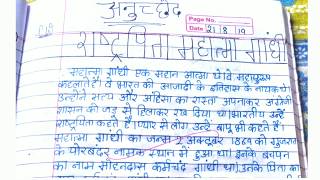 अनुच्छेद
Page No.
Date 21 8 19
राष्ट्रपिता महात्मा गांधी
महात्मा गांधी एक महान आत्मा थे वे महापुरुष
कहलाते हैं। वे भारत की आजादी के इतिहास के नायक थे।
उन्होंने सत्य और अहिंसा का रास्ता अपनाकर अंग्रेजी
शासन की जड़ को हिलाकर रख दिया था। भारतीय उन्हें
राष्ट्रपिता कहते हैं। प्यार से लोग उन्हें बापू भी कहते हैं।
महात्मा गांधी का जन्म 2 अक्टूबर 1869 को गुजरात
के पोरबंदर नामक स्थान में हुआ था। इनके बचपन
का नाम मोहनदास कर्मचंद गांधी था। उनके पिता का